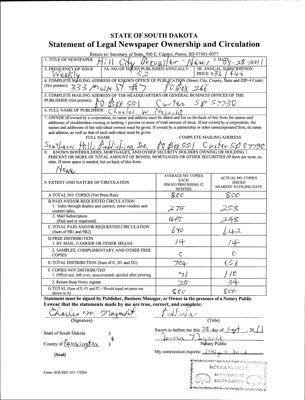 STATE OF SOUTH DAKOTA
Statement of Legal Newspaper Ownership and Circulation
Return to: Secretary of State, 500 E. Capitol, Pierre, SD 57501-5077
1. TITLE OF NEWSPAPER Hill City Prevailer - News 2. DATE 9-28-2011
3. FREQUENCY OF ISSUE Weekly 3A. NO. OF ISSUES PUBLISHED ANNUALLY 52 3B. ANNUAL SUBSCRIPTION PRICE $36/$46
4. COMPLETE MAILING ADDRESS OF KNOWN OFFICE OF PUBLICATION (Street, City, County, State and ZIP+4 Code)
(Not printers) 333 Main St #7 PO Box 266
5. COMPLETE MAILING ADDRESS OF THE HEADQUARTERS OF GENERAL BUSINESS OFFICES OF THE
PUBLISHER (Not printer) PO Box 551 Custer SD 57730
6. FULL NAME OF PUBLISHER: Charles W. Najacht
7. OWNER (If owned by a corporation, its name and address must be stated and also immediately
FULL NAME COMPLETE MAILING ADDRESS
Southern Hills Publishing Inc PO Box 551 Custer SD 57730
8. KNOWN BONDHOLDERS, MORTGAGEES, AND OTHER SECURITY HOLDERS OWNING OR HOLDING 1
PERCENT OR MORE OF TOTAL AMOUNT OF BONDS, MORTGAGES OR OTHER SECURITIES (If there are none, so
state. If more space is needed, list on back of this form.
None
9. EXTENT AND NATURE OF CIRCULATION AVERAGE NO. COPIES EACH ISSUED PRECEDING 12 MONTHS ACTUAL NO. COPIES ISSUED NEAREST TO FILING DATE
A. TOTAL NO. COPIES (Net Press Run) 800 800
B. PAID AND/OR REQUESTED CIRCULATION
1. Sales through dealers and carriers, street vendors and counter sales.
2. Mail Subscription
(Paid and or requested)
C. TOTAL PAID AND/OR REQUESTED CIRCULATION
(Sum of 9B1 and 9B2) 690 642
D. FREE DISTRIBUTION
1. BY MAIL, CARRIER OR OTHER MEANS 14 14
2. SAMPLES, COMPLIMENTARY AND OTHER FREE COPIES 0 0
E. TOTAL DISTRIBUTION (Sum of C, D1 and D2) 704 656
F. COPIES NOT DISTRIBUTED
1. Office use, left over, unaccounted, spoiled after printing 71 110
2. Return from News Agents 25 34
G. TOTAL (Sum of E, F1 and F2 - Should equal net press run shown in A) 800 800
Statement must be signed by Publisher, Business Manager, or Owner in the presence of a Notary Public
I swear that the statements made by me are true, correct, and complete:
Charles W. Najacht Publisher
(Signature) (Title)
State of South Dakota ) Sworn to before me this 28 day of Sept, 2011
County of Pennington )
Notary Public
(Seal) My commission expires:
Form: SOS REC 051 7/2004
SOUTH DAKOTA